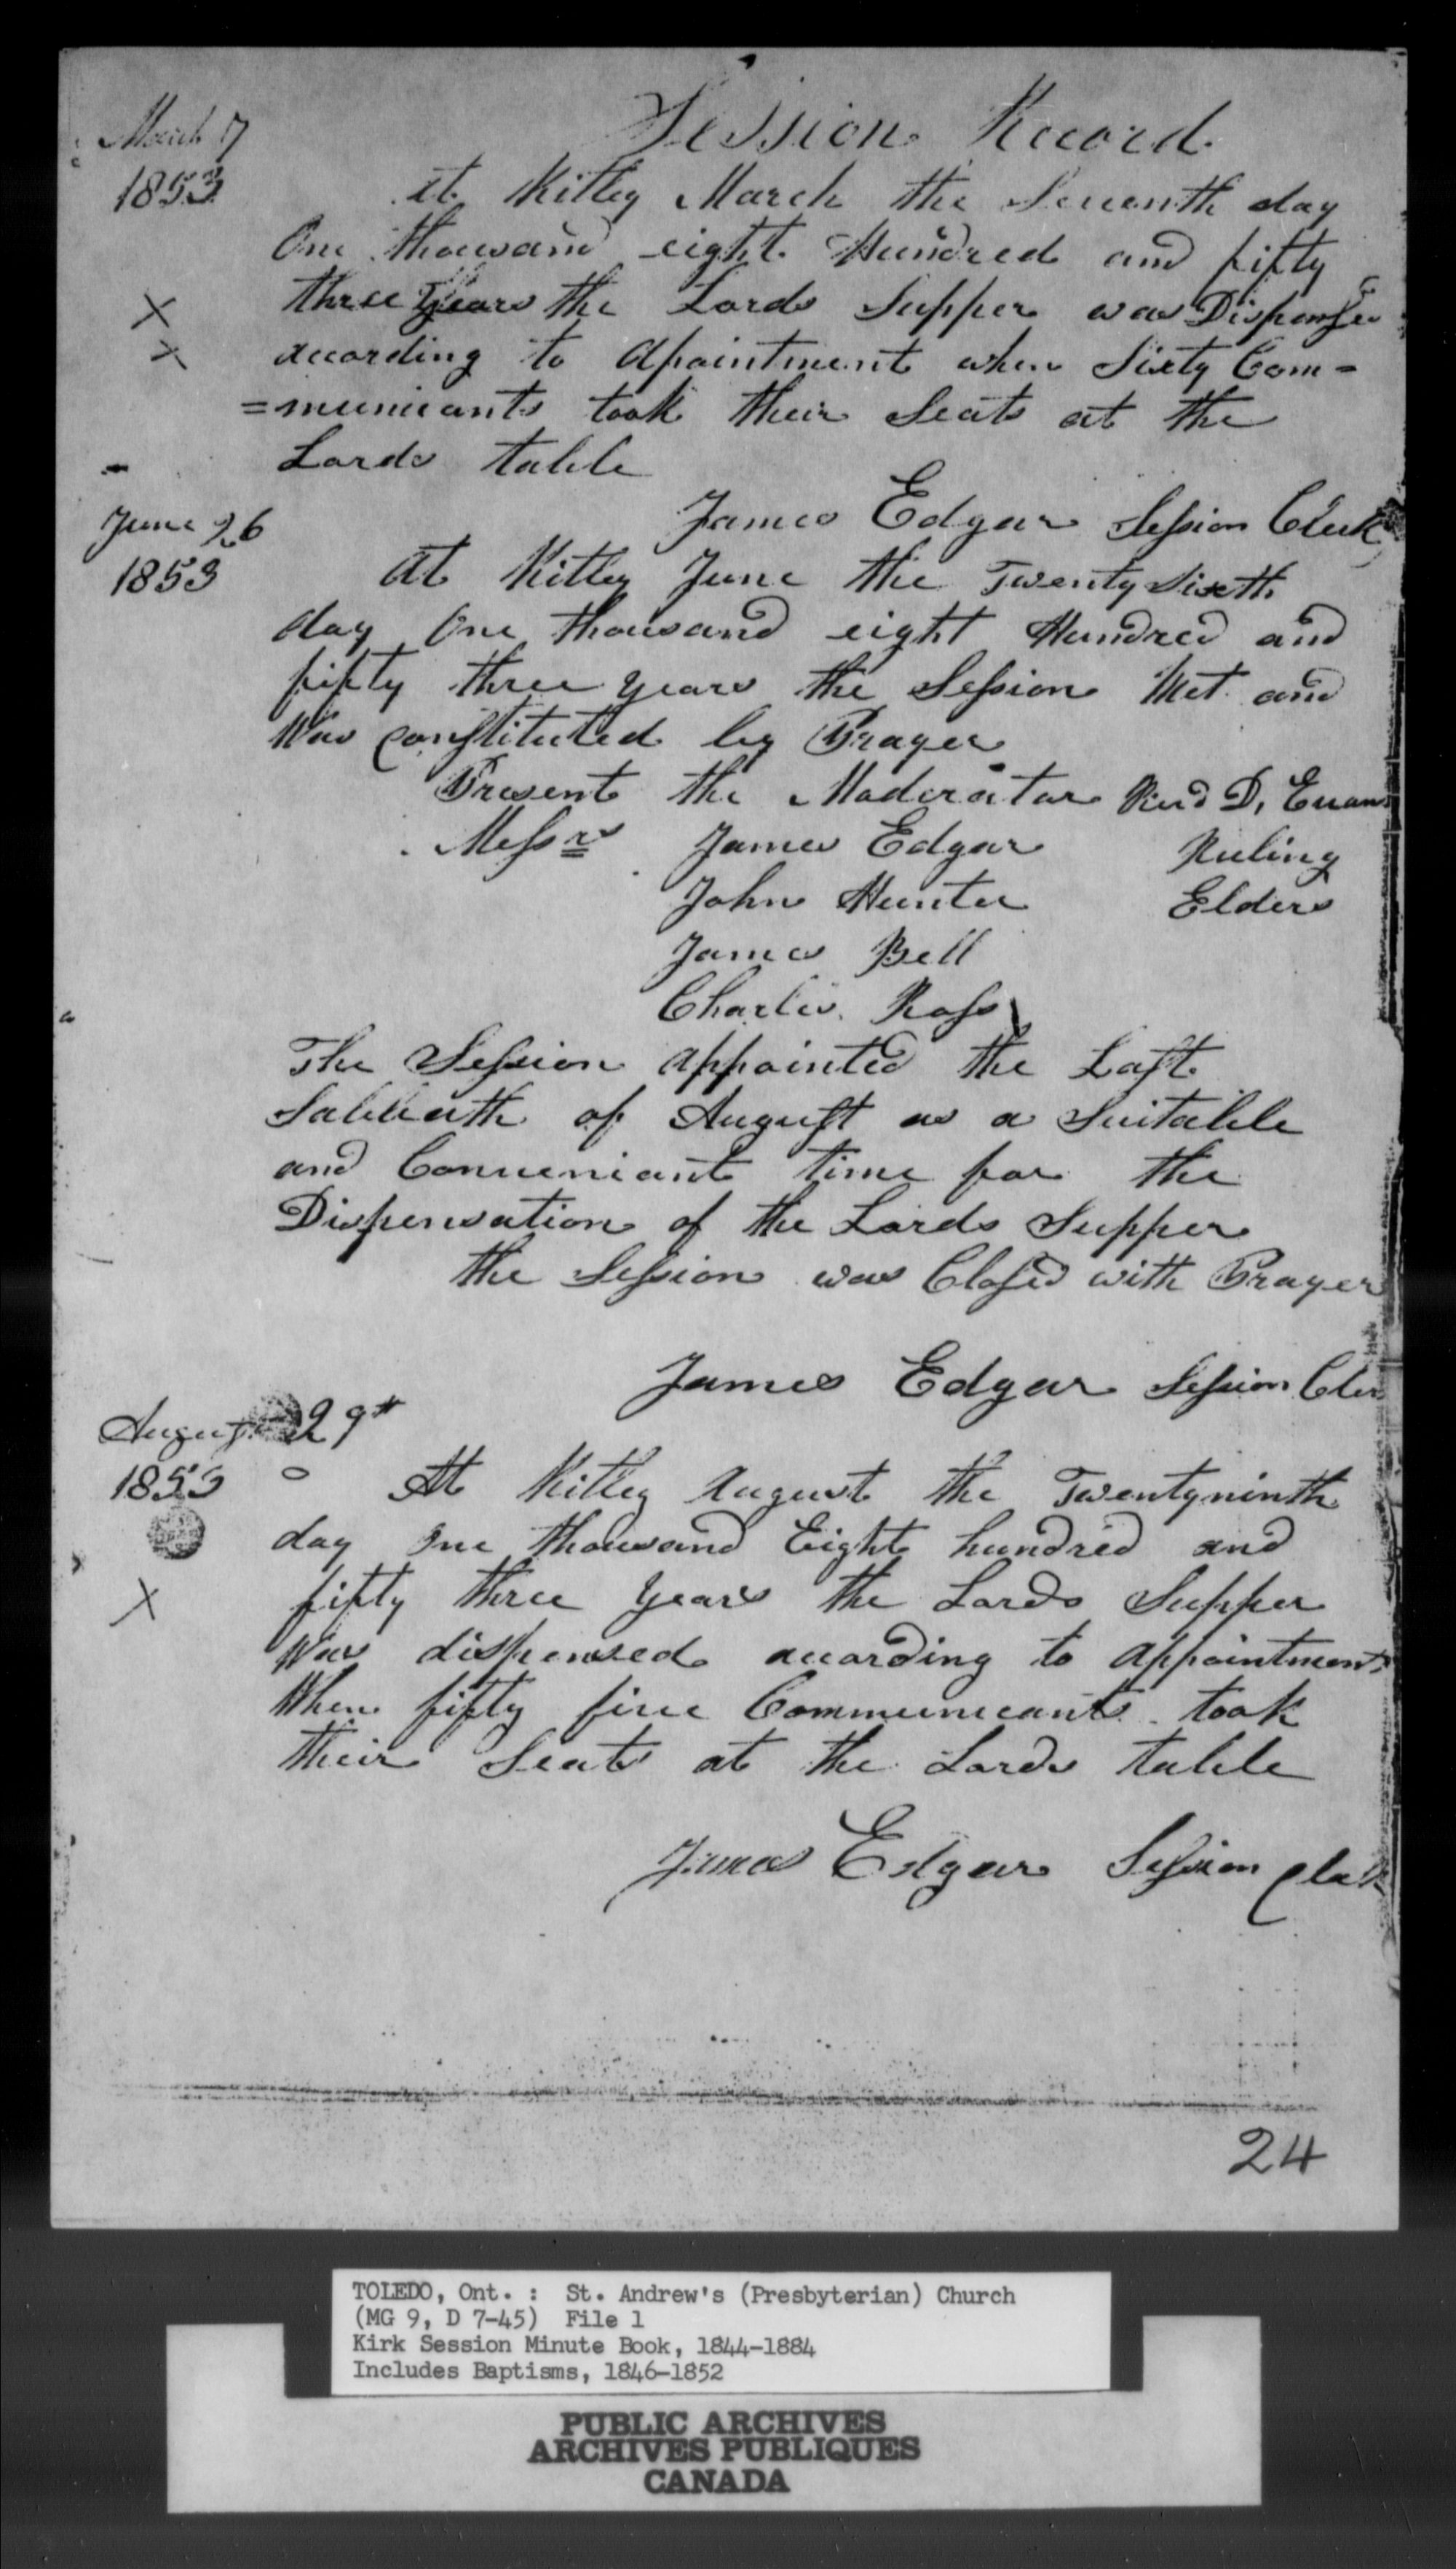 Session Record
March 7
1853
At Kitley March the Seventh day
One thousand eight Hundred and fifty
three Years the Lords Supper was Dispensed
according to Apointment when Sixty Com=
=municants took their Seats at the
Lords table
James Edgar Session Clerk
June 26
1853
At Kitley June the Twenty Sixth
day One thousand eight Hundred and
fifty three years the Session Met and
Was Constituted by Prayer
Present the Moderator Revd D. Evans
Messrs James Edgar Ruling
John Hunter Elders
James Bell
Charles Ross
The Session appointed the Last
Sabbath of August as a Suitable
and Conveniant time for the
Dispensation of the Lords Supper
the Session was Closed with Prayer
James Edgar Session Cler
August 29th
1853
At Kitley August the Twentyninth
day One thousand Eight hundred and
fifty three Years the Lords Supper
Was dispensed according to Appointment
When fifty five Communicants took
their Seats at the Lords table
James Edgar Session Clerk
24
TOLEDO, Ont. : St. Andrew's (Presbyterian) Church
(MG 9, D 7-45) File 1
Kirk Session Minute Book, 1844-1884
Includes Baptisms, 1846-1852
PUBLIC ARCHIVES
ARCHIVES PUBLIQUES
CANADA